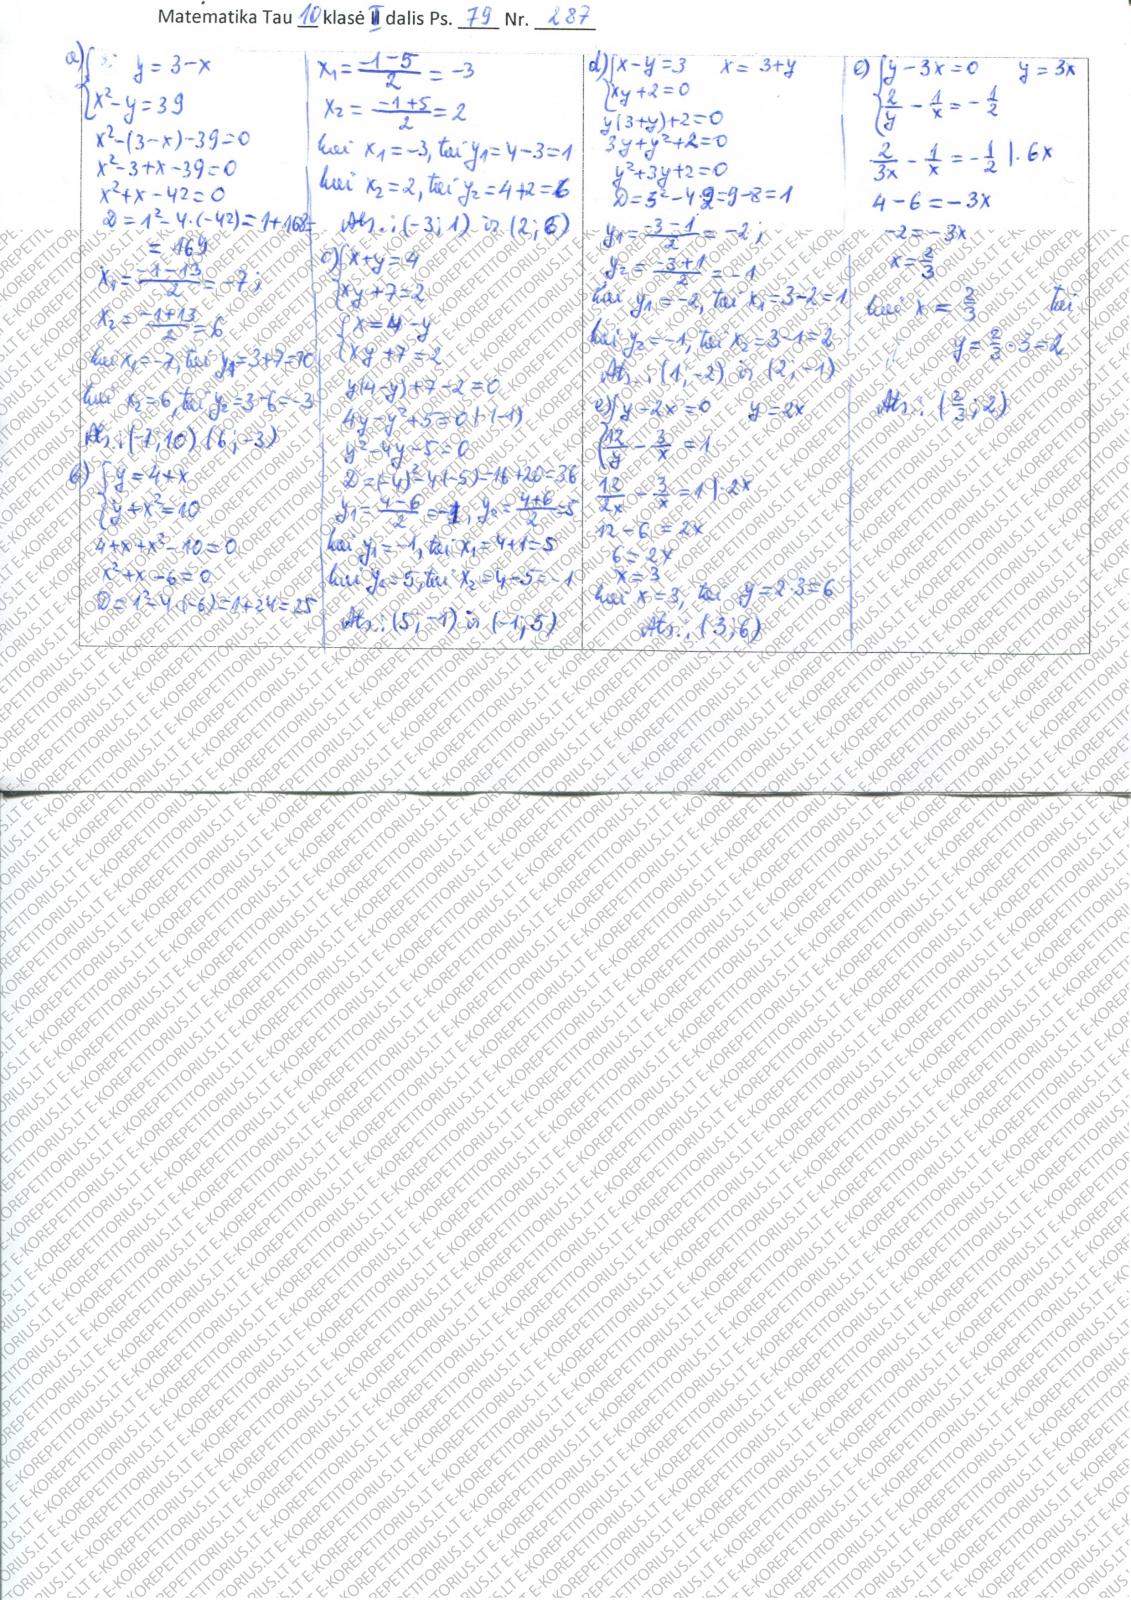 Matematika Tau 10 klasė II dalis Ps. 79 Nr. 287
a) { y = 3-x
x²-y = 39
x²-(3-x)-39=0
x²-3+x-39=0
x²+x-42=0
D=1²-4·(-42)=1+168=
= 169
x₁=(-1-13)/2=-7;
x₂=(-1+13)/2=6
kai x₁=-7, tai y₁=3+7=10
kai x₂=6, tai y₂=3-6=-3
Ats.: (-7;10) (6;-3)
b) { y=4+x
y+x²=10
4+x+x²-10=0
x²+x-6=0
D=1²-4·(-6)=1+24=25
x₁=(-1-5)/2=-3
x₂=(-1+5)/2=2
kai x₁=-3, tai y₁=4-3=1
kai x₂=2, tai y₂=4+2=6
Ats.: (-3;1) ir (2;6)
c) { x+y=4
xy+7=2
{ x=4-y
xy+7=2
y(4-y)+7-2=0
4y-y²+5=0 |·(-1)
y²-4y-5=0
D=(-4)²-4·(-5)=16+20=36
y₁=(4-6)/2=-1, y₂=(4+6)/2=5
kai y₁=-1, tai x₁=4+1=5
kai y₂=5, tai x₂=4-5=-1
Ats.: (5;-1) ir (-1;5)
d) { x-y=3 x=3+y
xy+2=0
y(3+y)+2=0
3y+y²+2=0
y²+3y+2=0
D=3²-4·2=9-8=1
y₁=(-3-1)/2=-2;
y₂=(-3+1)/2=-1
kai y₁=-2, tai x₁=3-2=1
kai y₂=-1, tai x₂=3-1=2
Ats.: (1;-2) ir (2;-1)
e) { y-2x=0 y=2x
12/y - 3/x = 1
12/2x - 3/x = 1 |·2x
12-6=2x
6=2x
x=3
kai x=3, tai y=2·3=6
Ats.: (3;6)
{ y-3x=0 y=3x
2/y - 1/x = -1/2
2/3x - 1/x = -1/2 |·6x
4-6=-3x
-2=-3x
x=2/3
kai x=2/3 tai
y=2/3·3=2
Ats.: (2/3;2)
E-KOREPETITORIUS.LT